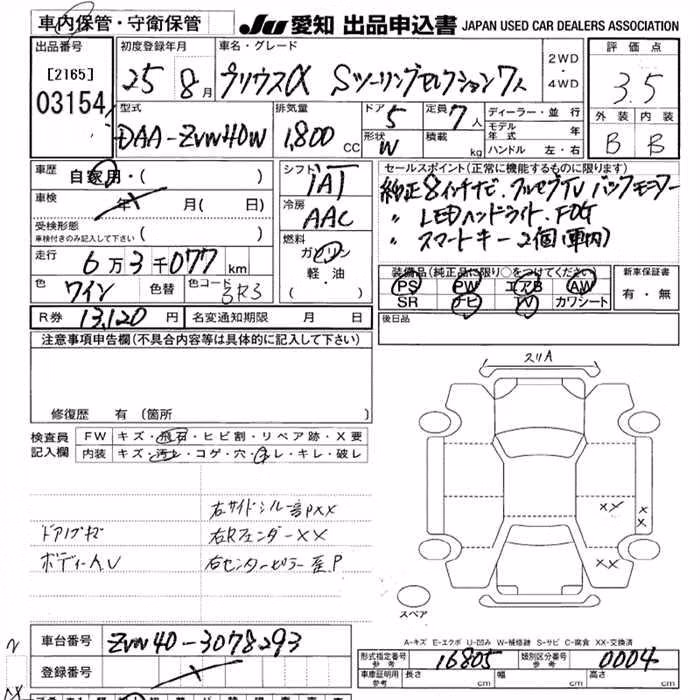 車内保管・守衛保管 JU 愛知 出品申込書 JAPAN USED CAR DEALERS ASSOCIATION
出品番号 初度登録年月 車名・グレード 2WD・4WD 評価点
[2165] 25年 8月 プリウスα Sツーリングセレクション7人 3.5
03154
型式 排気量 ドア 5 定員 7人 ディーラー・並行 外装 内装
DAA-ZVW40W 1,800cc 形状 W 積載 kg モデル年式 年 B B
ハンドル 左・右
車歴 自家用・( ) シフト セールスポイント(正常に機能するものに限ります)
車検 年 月( 日) IAT 純正8インチナビ フルセグTV バックモニター
受検形態 冷房 〃 LEDヘッドライト.FOG
車検付きのみ記入して下さい ( ) AAC 〃 スマートキー2個(車内)
走行 6万3千077km 燃料 ガソリン
色 ワイン 色替 色コード 3R3 軽・油 ( ・ )
装備品(純正品に限り○をつけてください) 新車保証書
PS PW エアB AW 有・無
SR ナビ TV カワシート
R券 13,120円 名変通知期限 月 日 後日品
注意事項申告欄(不具合内容等は具体的に記入して下さい)
修復歴 有 (箇所 )
検査員記入欄 FW キズ・飛石・ヒビ割・リペア跡・X要
内装 キズ・汚レ・コゲ・穴・スレ・キレ・破レ
スリA
右サイドシル
ドア内キズ 右Rフェンダー XX
ボディーA.U 右センターピラー
XX
XX
XX
スペア
A-キズ E-エクボ U-凹み W-補修跡 S-サビ C-腐食 XX-交換済
車台番号 ZVW40-3078293
登録番号
型式指定番号 参考 16805 類別区分番号 参考 0004
車庫証明用 参考 長さ cm 幅 cm 高さ cm